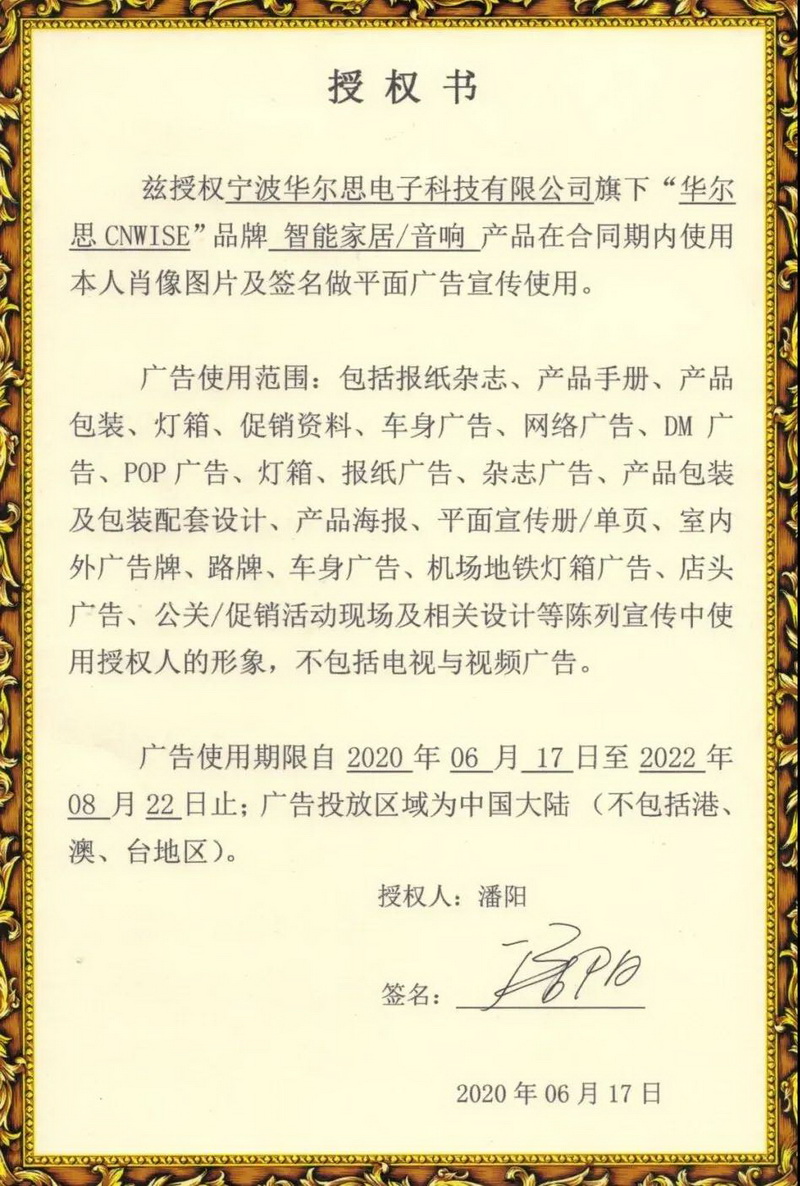 授权书
兹授权宁波华尔思电子科技有限公司旗下“华尔
思CNWISE”品牌 智能家居/音响 产品在合同期内使用
本人肖像图片及签名做平面广告宣传使用。
广告使用范围：包括报纸杂志、产品手册、产品
包装、灯箱、促销资料、车身广告、网络广告、DM 广
告、POP 广告、灯箱、报纸广告、杂志广告、产品包装
及包装配套设计、产品海报、平面宣传册/单页、室内
外广告牌、路牌、车身广告、机场地铁灯箱广告、店头
广告、公关/促销活动现场及相关设计等陈列宣传中使
用授权人的形象，不包括电视与视频广告。
广告使用期限自 2020 年 06 月 17 日至 2022 年
08 月 22 日止；广告投放区域为中国大陆 （不包括港、
澳、台地区）。
授权人：潘阳
签名：
2020 年 06 月 17 日